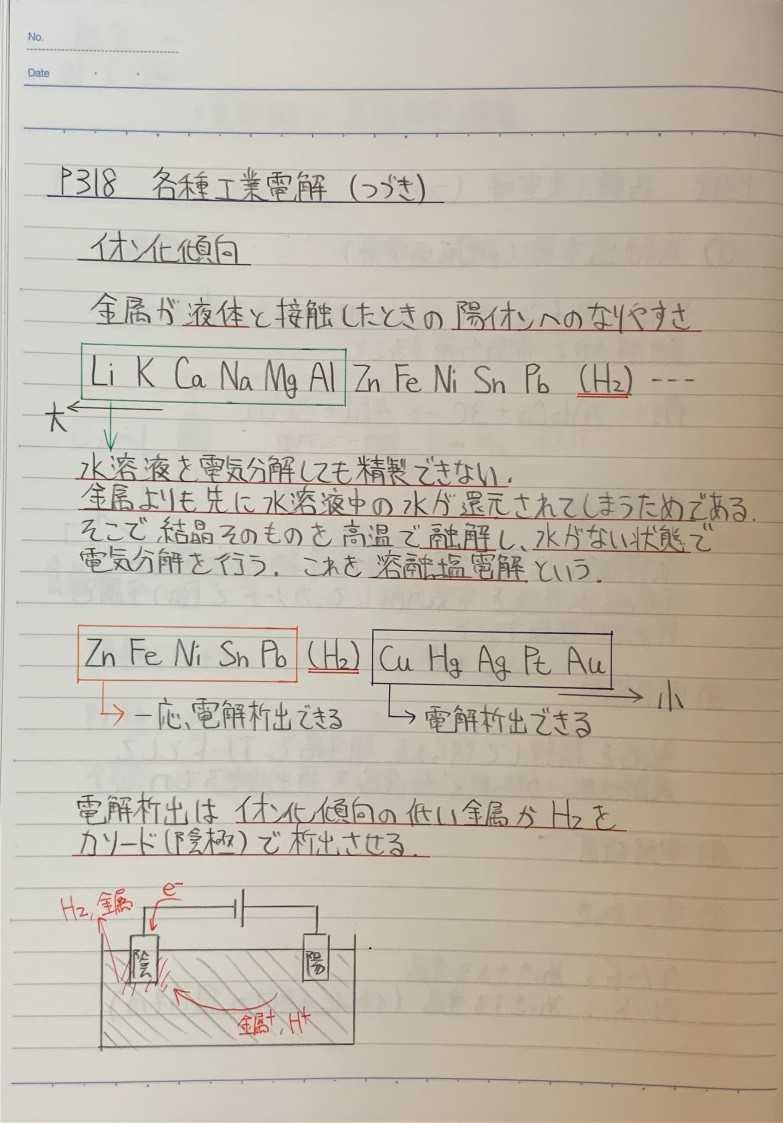 No.
Date
P318 各種工業電解 (つづき)
イオン化傾向
金属が液体と接触したときの陽イオンへのなりやすさ
Li K Ca Na Mg Al Zn Fe Ni Sn Pb (H₂) ---
大
水溶液を電気分解しても精製できない.
金属よりも先に水溶液中の水が還元されてしまうためである.
そこで結晶そのものを高温で融解し、水がない状態で
電気分解を行う. これを溶融塩電解という.
Zn Fe Ni Sn Pb (H₂) Cu Hg Ag Pt Au
小
一応、電解析出できる 電解析出できる
電解析出はイオン化傾向の低い金属かH₂を
カソード(陰極)で析出させる.
H₂, 金属 e⁻
陰 陽
金属⁺, H⁺